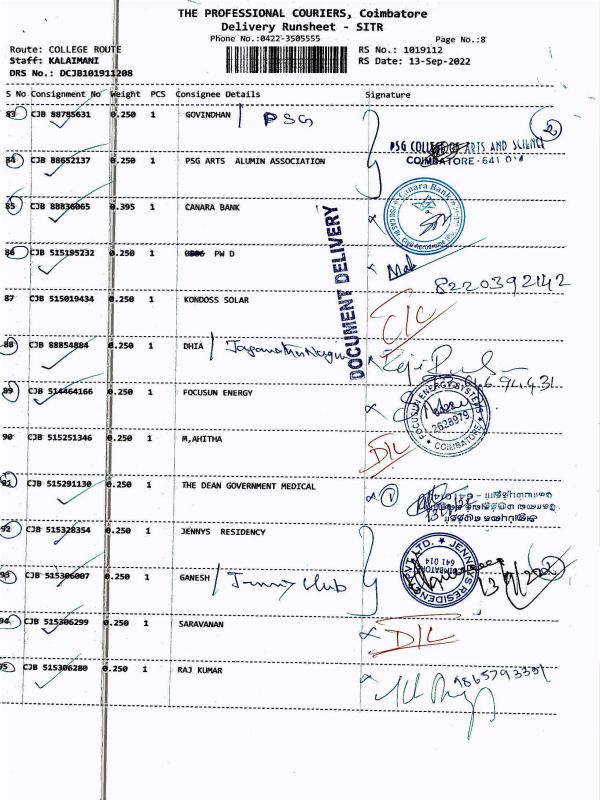 THE PROFESSIONAL COURIERS, Coimbatore
Delivery Runsheet - SITR
Phone No.:0422-3505555
Page No.:8
Route: COLLEGE ROUTE
RS No.: 1019112
Staff: KALAIMANI
RS Date: 13-Sep-2022
DRS No.: DCJB101911208
S No Consignment No Weight PCS Consignee Details Signature
83 CJB 88785631 0.250 1 GOVINDHAN / PSG
PSG COLLEGE OF ARTS AND SCIENCE
COIMBATORE-641 014
84 CJB 88652137 0.250 1 PSG ARTS ALUMIN ASSOCIATION
Canara Bank
85 CJB 88836065 0.395 1 CANARA BANK
DOCUMENT DELIVERY
86 CJB 515195232 0.250 1 PW D
8220392142
87 CJB 515019434 0.250 1 KONDOSS SOLAR
88 CJB 88854884 0.250 1 DHIA /
89 CJB 514464166 0.250 1 FOCUSUN ENERGY
FOCUSUN ENERGY SYSTEMS
2628979
COIMBATORE
90 CJB 515251346 0.250 1 M,AHITHA
D/L
91 CJB 515291130 0.250 1 THE DEAN GOVERNMENT MEDICAL
92 CJB 515328354 0.250 1 JENNYS RESIDENCY
JENNYS RESIDENCY PVT LTD.
COIMBATORE
641 014
93 CJB 515306007 0.250 1 GANESH / Jenny club
94 CJB 515306299 0.250 1 SARAVANAN
D/L
95 CJB 515306280 0.250 1 RAJ KUMAR
9865793351